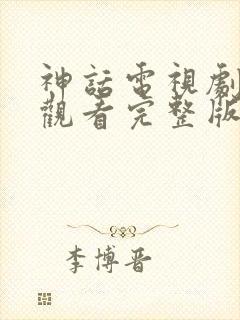 神話電視劇
觀看完整版
李博晋